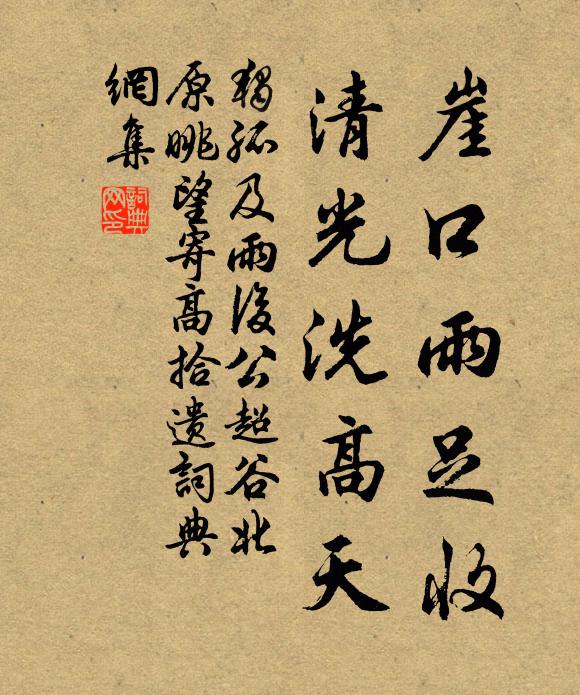 崖口雨足收
清光洗高天
獨孤及雨後公超谷北
原眺望寄高拾遺詞典
網集
詞典
网印